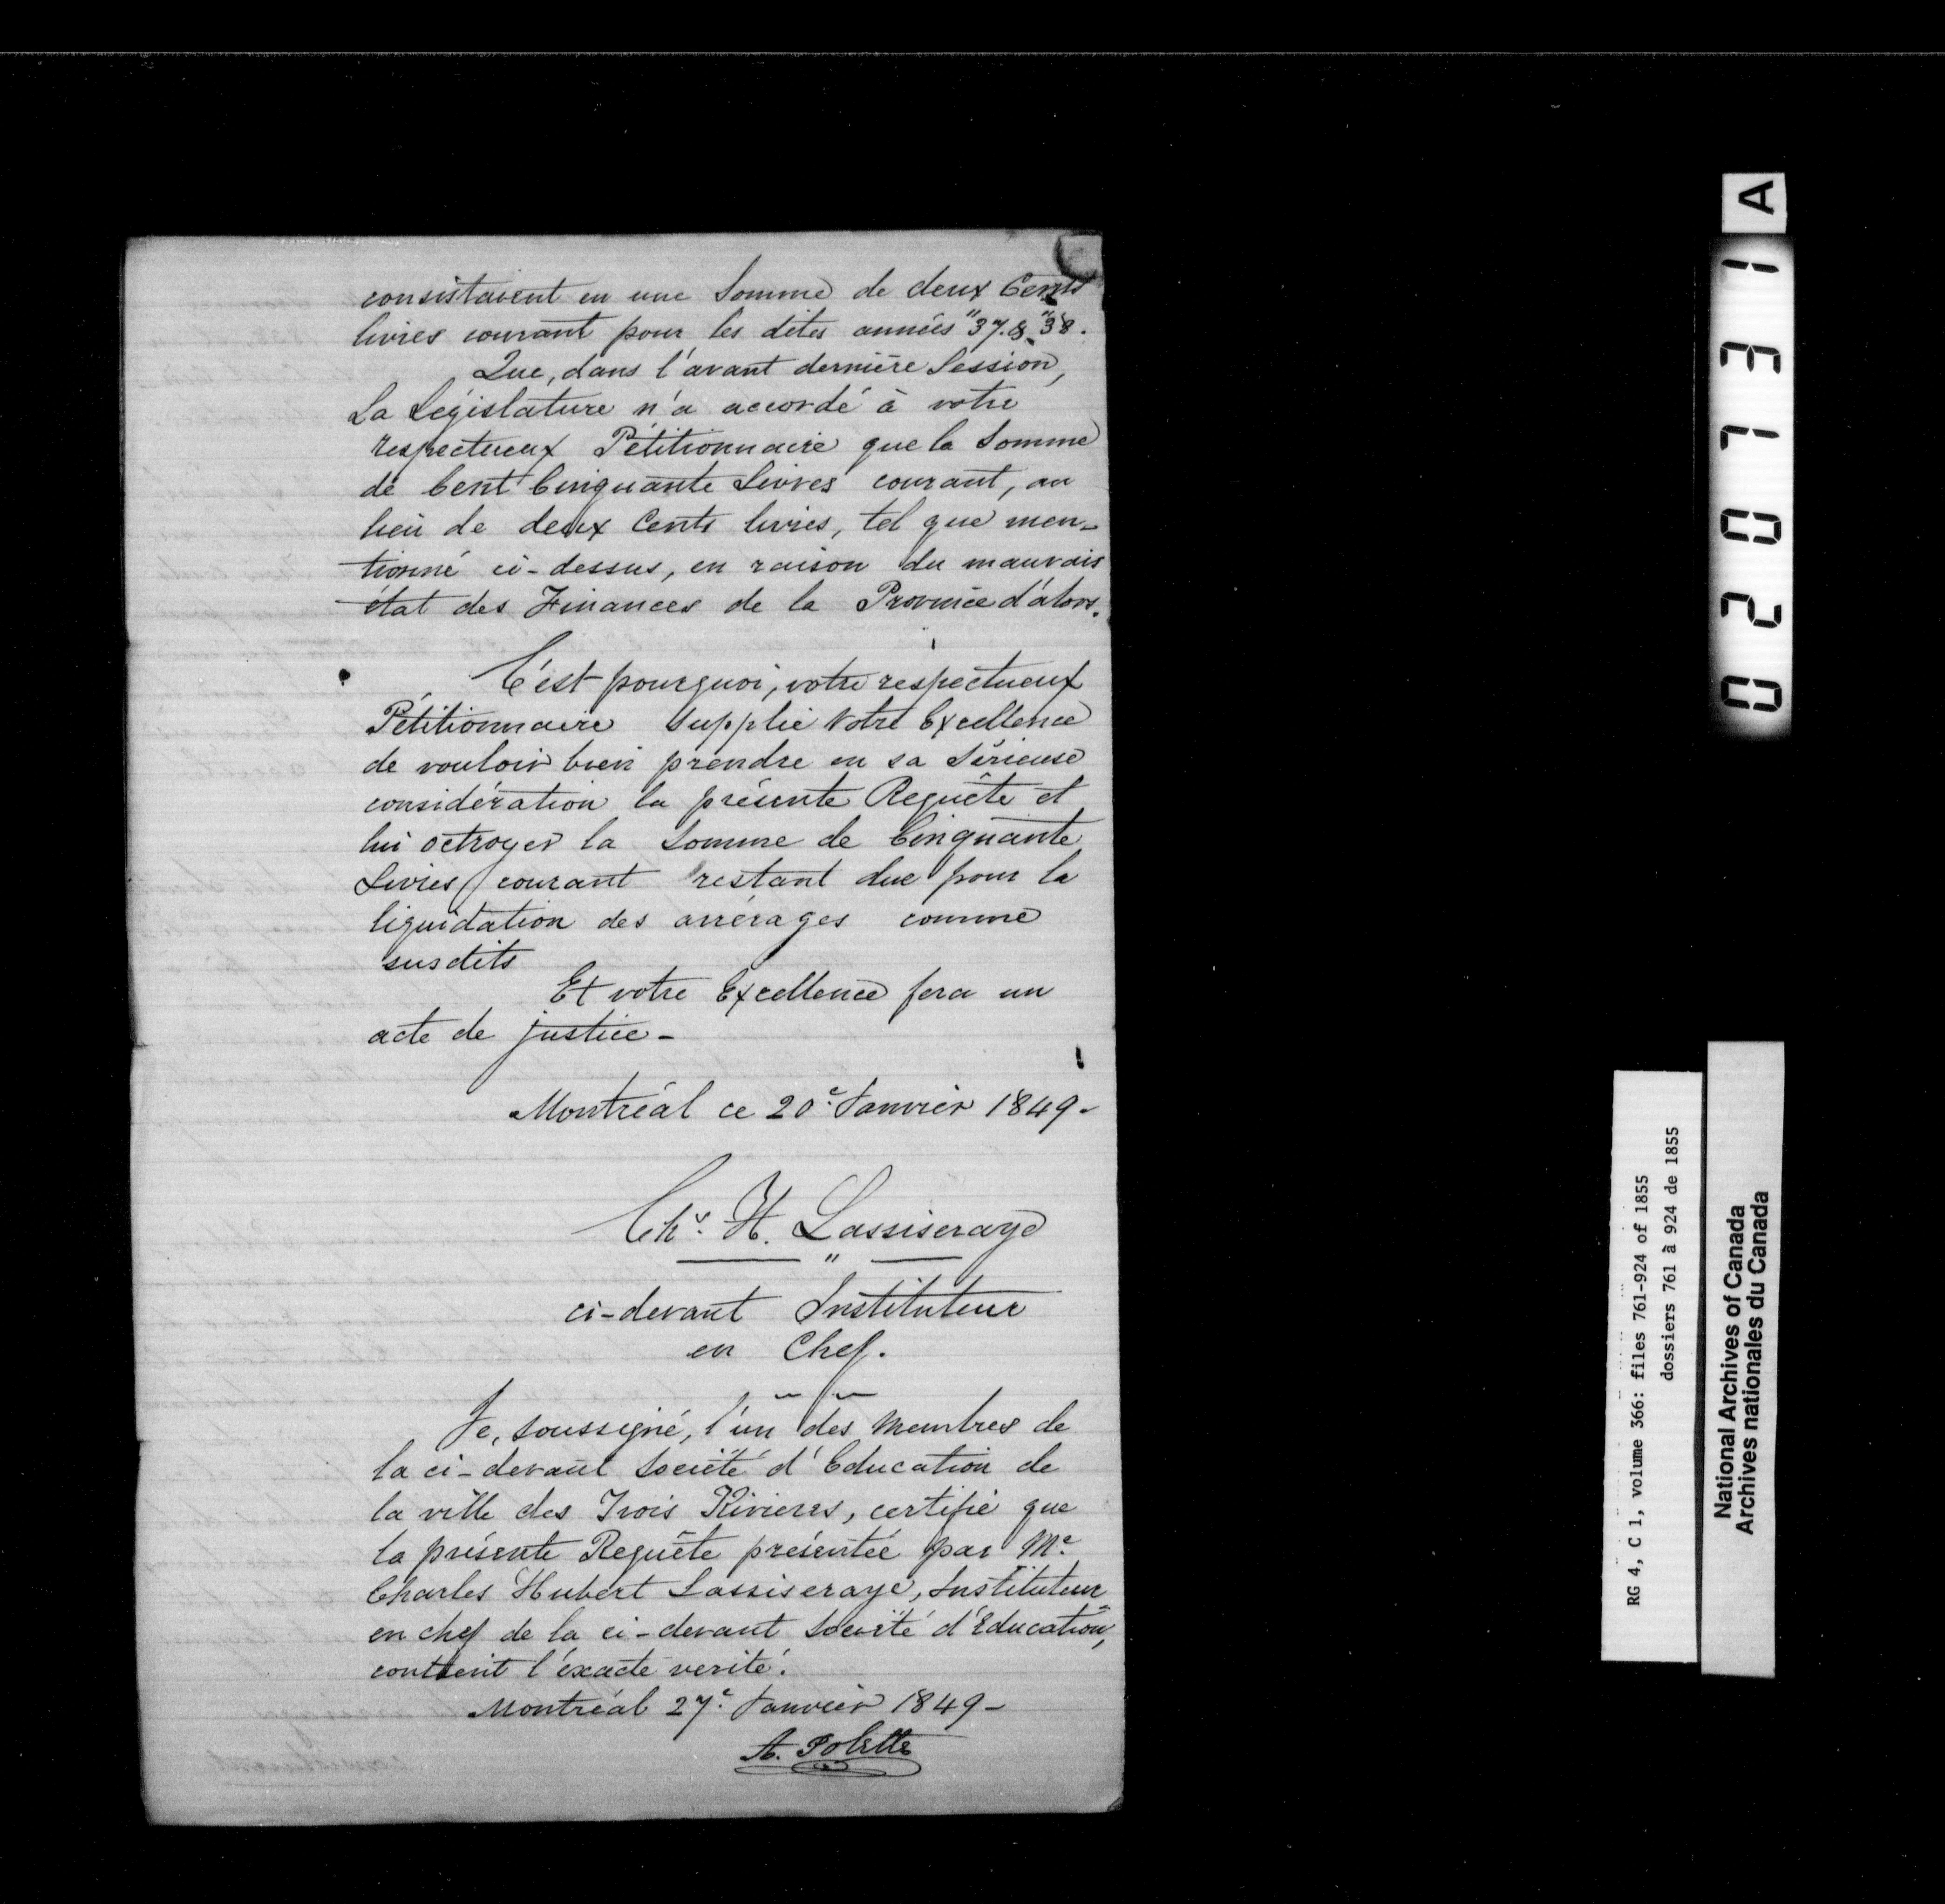 consistaient en une Somme de deux Cents
livres courant pour les dites années "37. & "38.
Que, dans l'avant dernière Session,
La Législature n'a accordé à votre
respectueux Pétitionnaire que la Somme
de Cent Cinquante Livres courant, au
lieu de deux Cents livres, tel que men-
tionné ci-dessus, en raison du mauvais
état des Finances de la Province d'alors.
C'est pourquoi, votre respectueux
Pétitionnaire supplie Votre Excellence
de vouloir bien prendre en sa Sérieuse
considération la présente Requête et
lui octroyer la Somme de Cinquante
Livres courant restant due pour la
liquidation des arrérages comme
susdits
Et votre Excellence fera un
acte de justice -
Montréal ce 20e Janvier 1849 -
Chs. H. Lassiseraye
"
ci-devant Instituteur
en Chef.
Je, soussigné, l'un des Membres de
la ci-devant Société d'Education de
la ville des Trois Rivieres, certifie que
la présente Requête présentée par Mr.
Charles Hubert Lassiseraye, Instituteur
en chef de la ci-devant Société d'Education,
contient l'éxacte verité.
Montréal 27e Janvier 1849 -
A. Polette
020731 A
RG 4, C 1, volume 366: files 761-924 of 1855
dossiers 761 à 924 de 1855
National Archives of Canada
Archives nationales du Canada